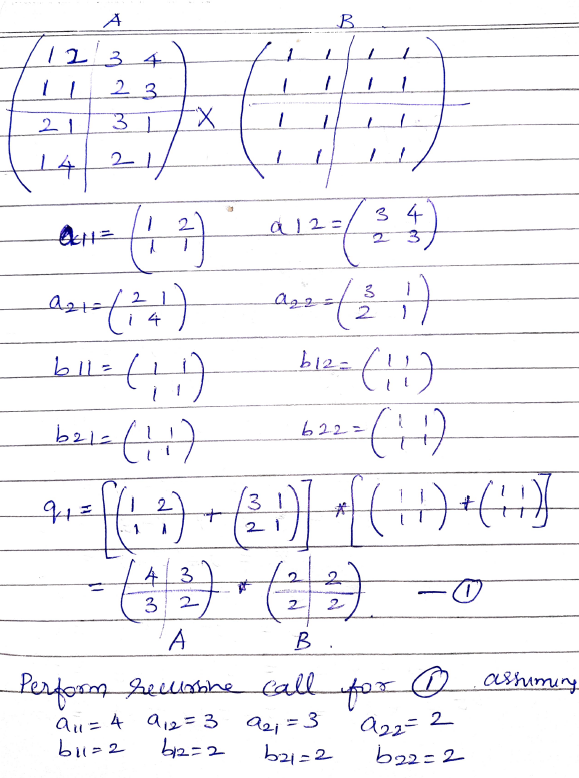 A B
( 1 2 3 4 ) ( 1 1 1 1 )
( 1 1 2 3 ) ( 1 1 1 1 )
( 2 1 3 1 ) X ( 1 1 1 1 )
( 1 4 2 1 ) ( 1 1 1 1 )
a11 = ( 1 2 ) a12 = ( 3 4 )
( 1 1 ) ( 2 3 )
a21 = ( 2 1 ) a22 = ( 3 1 )
( 1 4 ) ( 2 1 )
b11 = ( 1 1 ) b12 = ( 1 1 )
( 1 1 ) ( 1 1 )
b21 = ( 1 1 ) b22 = ( 1 1 )
( 1 1 ) ( 1 1 )
q1 = [( 1 2 ) + ( 3 1 )] * [( 1 1 ) + ( 1 1 )]
[( 1 1 ) ( 2 1 )] [( 1 1 ) ( 1 1 )]
= ( 4 3 ) * ( 2 2 ) — ①
( 3 2 ) ( 2 2 )
A B .
Perform recursive call for ① assuming
a11 = 4 a12 = 3 a21 = 3 a22 = 2
b11 = 2 b12 = 2 b21 = 2 b22 = 2